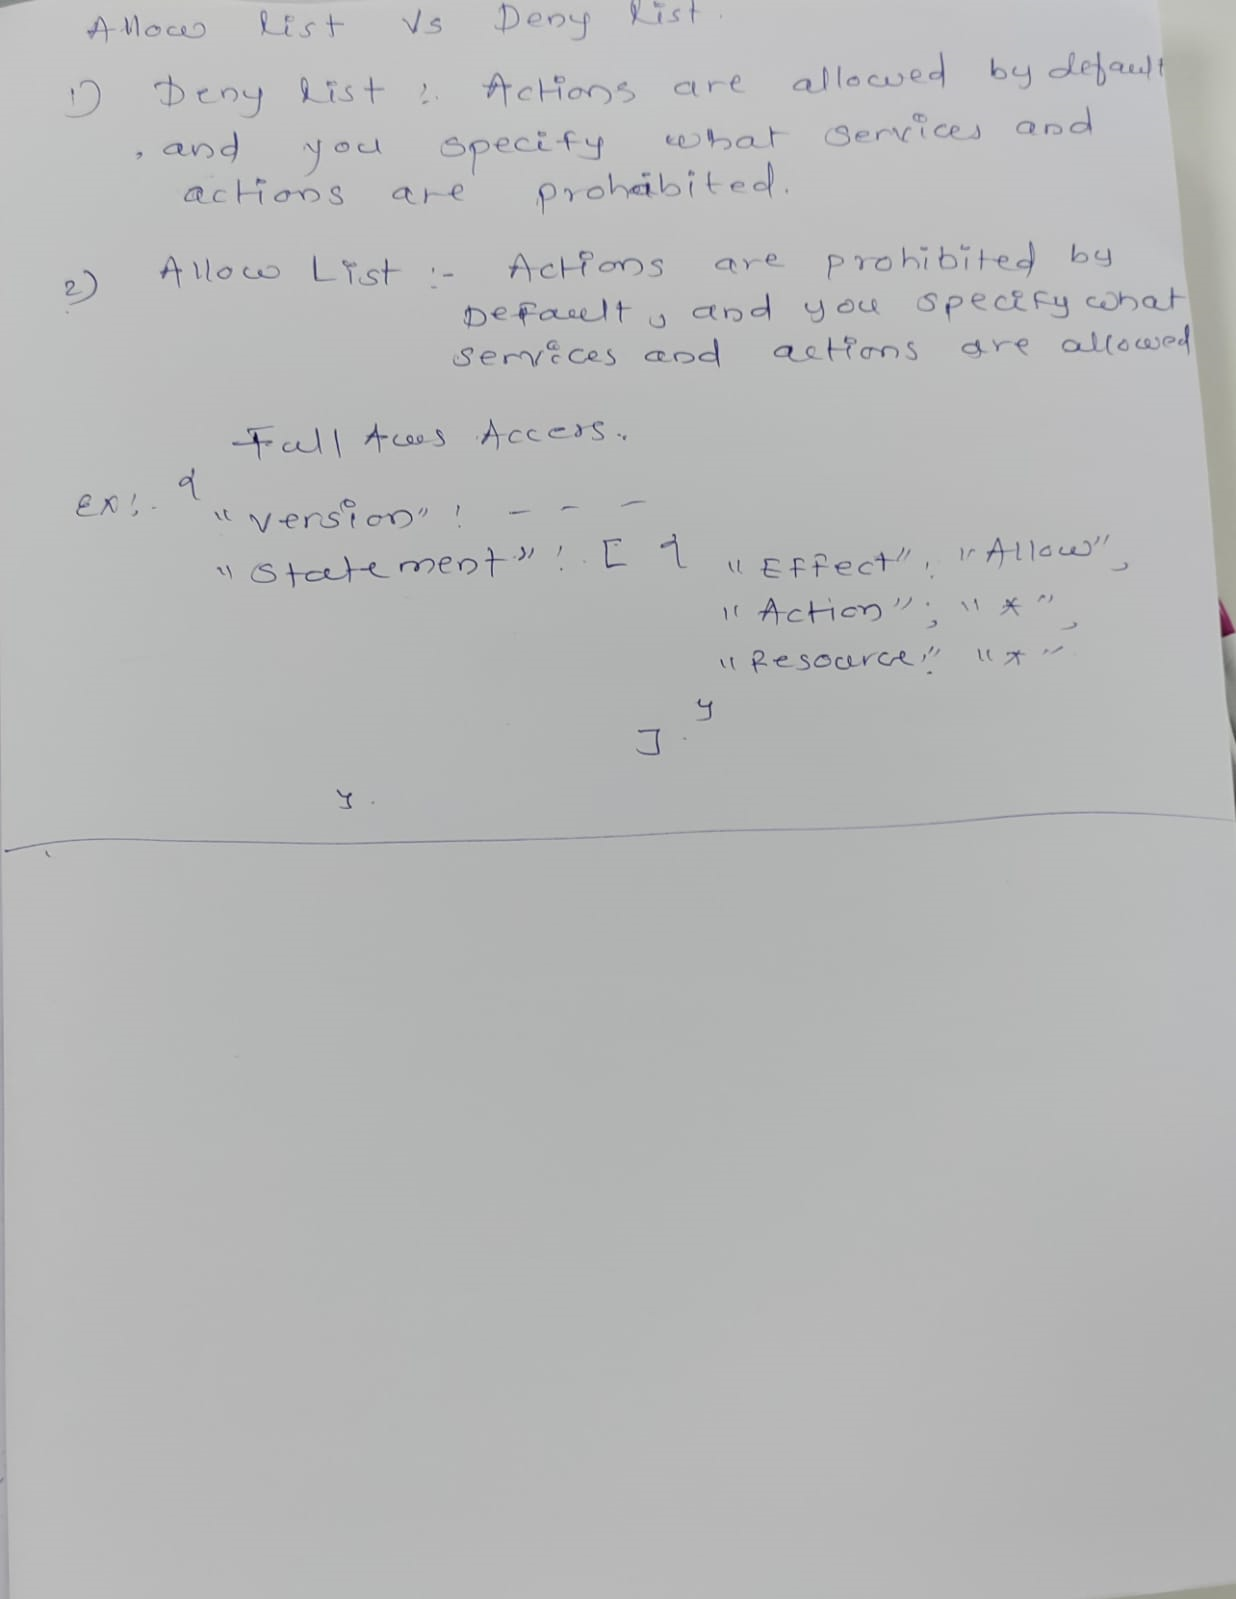 Allow list Vs Deny list.
1) Deny list :. Actions are allowed by default
, and you specify what services and
actions are prohibited.
2) Allow List :- Actions are prohibited by
Default, and you specify what
services and actions are allowed
Full Aws Access.
Ex:. {
"version" : - - -
"Statement" : [ { "Effect" : "Allow",
"Action" ; "*",
"Resource:" "*"
}
] .
} .